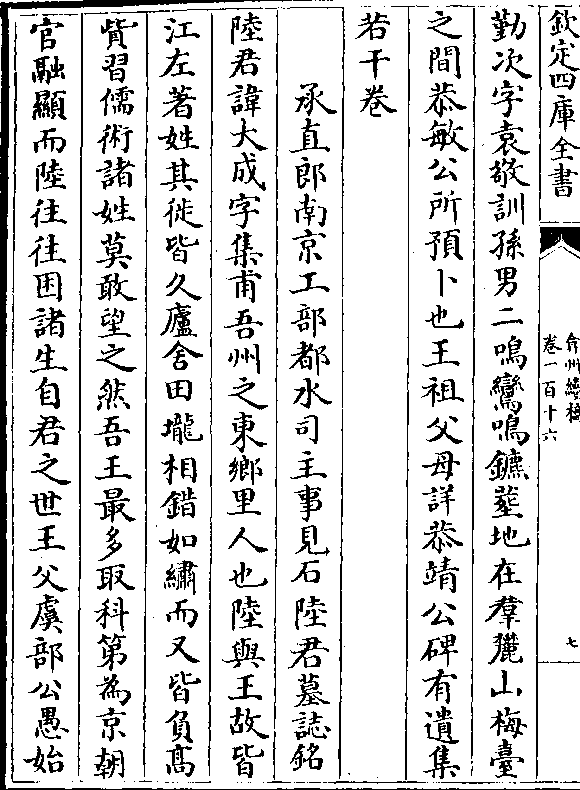 欽定四庫全書
弇州續稿
卷一百十六
七
勤次字袁敬訓孫男二鳴鸞鳴鑣塟地在羣麓山梅臺
之間恭敏公所預卜也王祖父母詳恭靖公碑有遺集
若干卷
承直郎南京工部都水司主事見石陸君墓誌銘
陸君諱大成字集甫吾州之東鄉里人也陸與王故皆
江左著姓其徙皆久廬舍田壠相錯如繡而又皆負高
貲習儒術諸姓莫敢望之然吾王最多取科第為京朝
官融顯而陸往往困諸生自君之世王父虞部公愚始